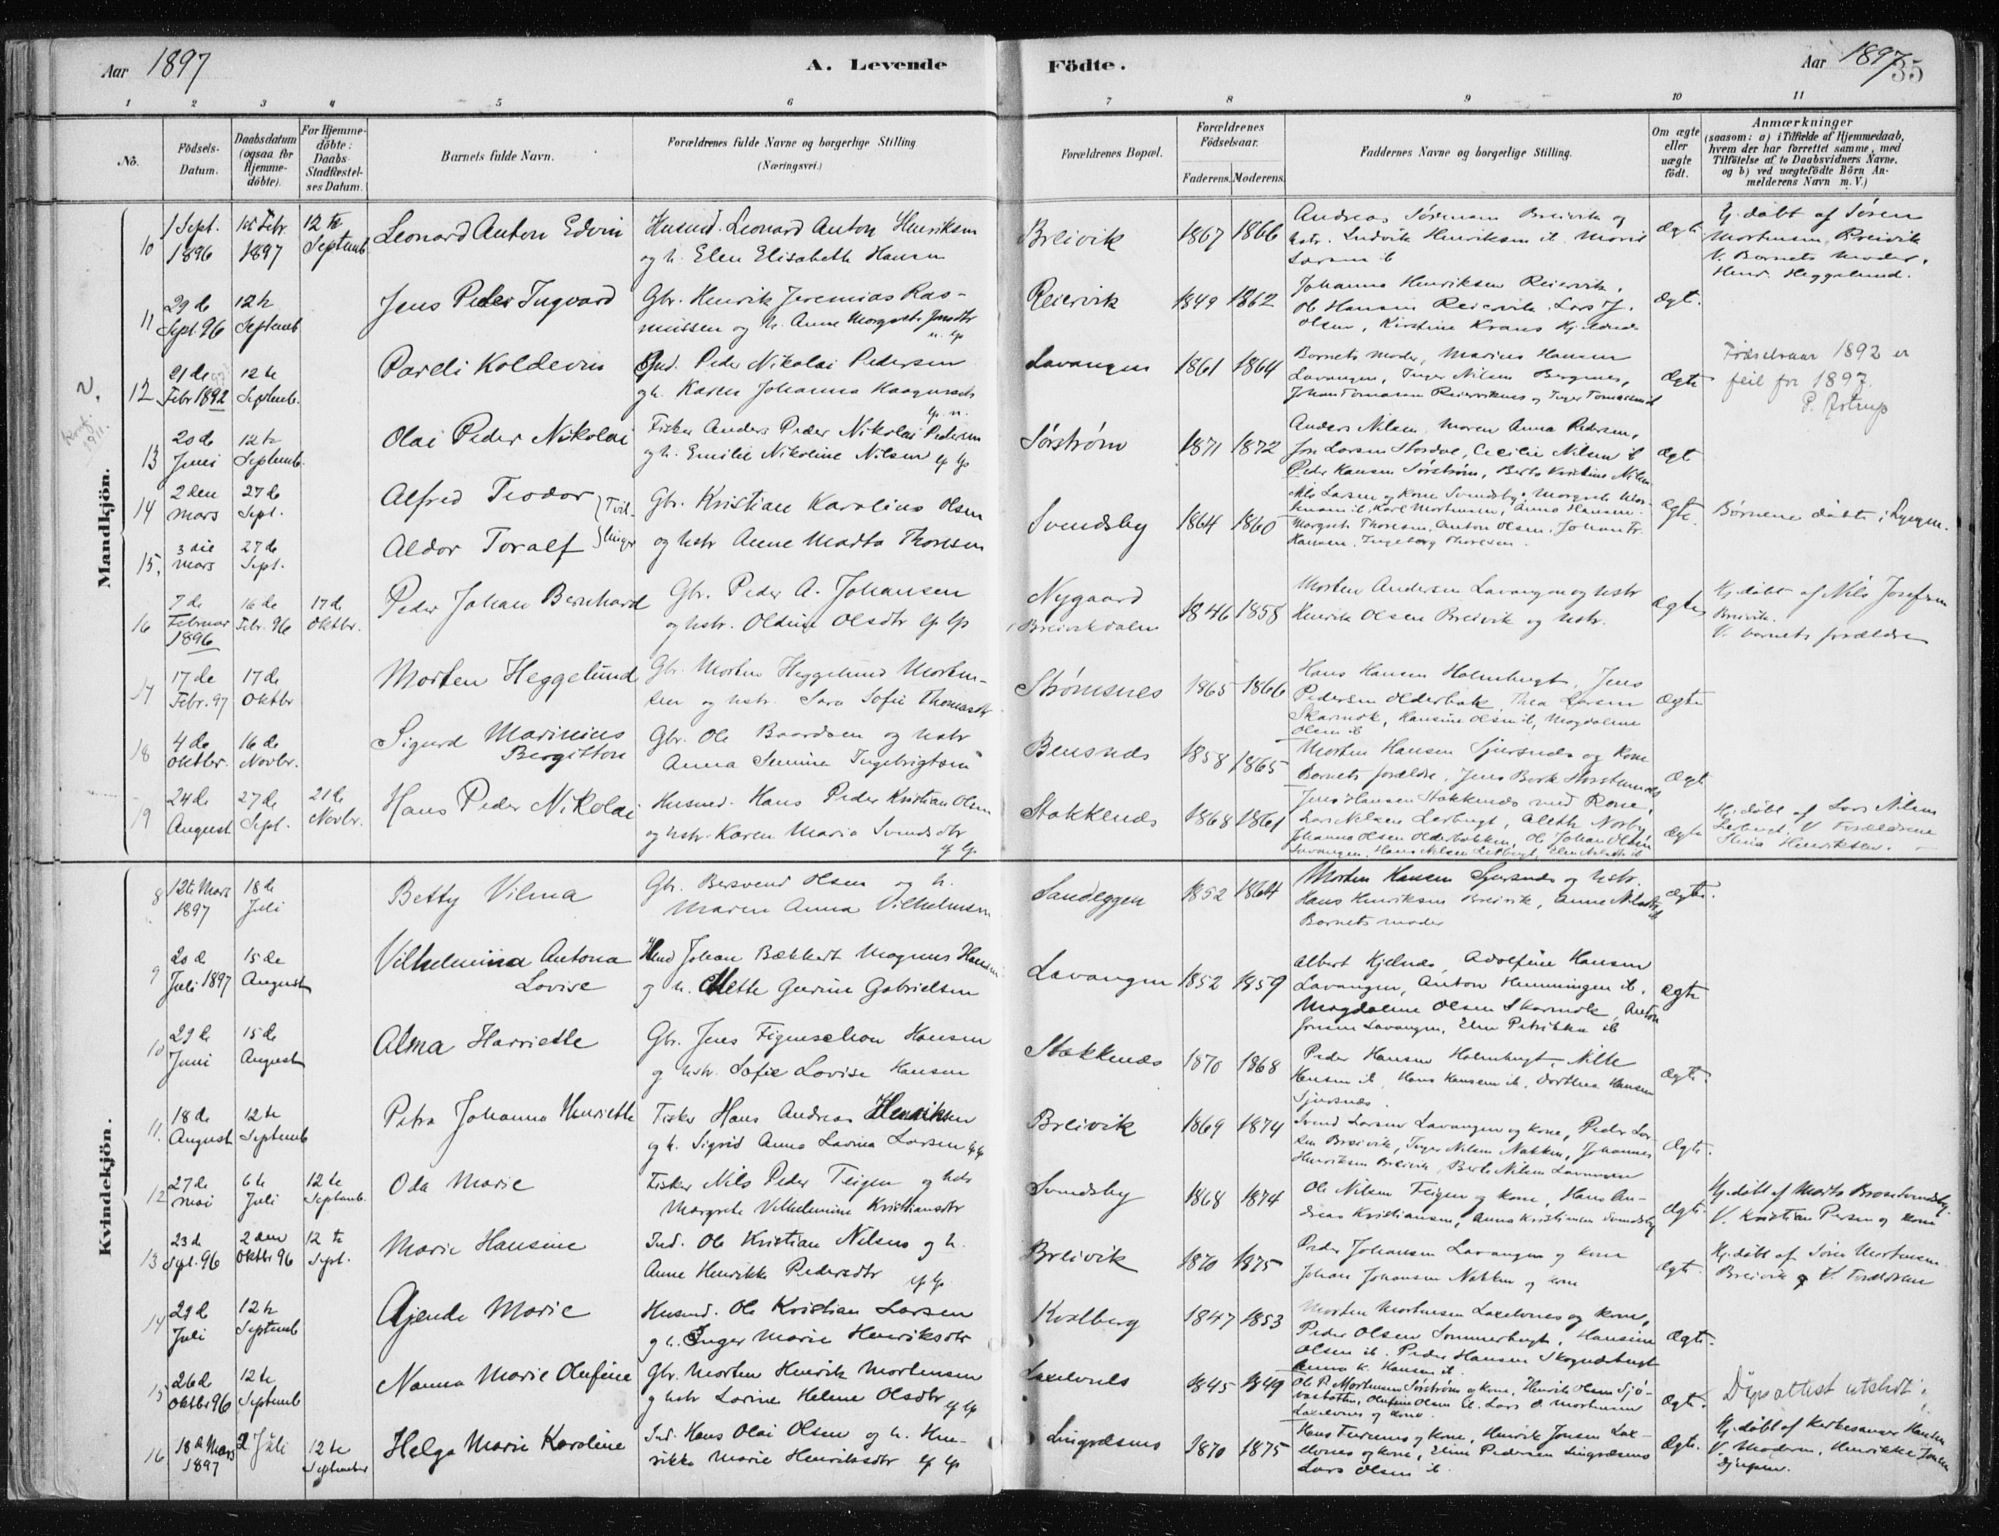 Aar 1897
A. Levende
Födte.
Aar 1897
35
1 2 3 4 5 6 7 8 9 10 11
No.
Födsels-
Datum.
Daabsdatum
(ogsaa for
Hjemme-
döbte).
For Hjemme-
döbte:
Daabs-
Stadfæstel-
ses Datum.
Barnets fulde Navn.
Forældrenes fulde Navne og borgerlige Stilling
(Næringsvei.)
Forældrenes Bopæl.
Forældrenes
Födselsaar.
Faderens. Moderens.
Faddernes Navne og borgerlige Stilling.
Om ægte
eller
uægte
födt.
Anmærkninger
(saasom: a) i Tilfælde af Hjemmedaab,
hvem der har forrettet samme, med
Tilföielse af to Daabsvidners Navne.
og b) ved uægtefödte Börn An-
melderens Navn m. V.)
Mandkjön.
10
1 Sept.
1896
15 Febr.
1897
12 te
Septemb.
Leonard Anton Edvin
Husmd. Leonard Anton Henriksen
og h. Elen Elisabeth Hansen
Breivik
1867 1866
Andreas Sørensen Breivik og
hstr. Ludvik Henriksen ib. Marit
Larsen ib
Ægte
Hj. døbt af Søren
Mortensen, Breivik
V. Barnets moder,
Henr. Heggelund.
11
29 de
Sept 96
12 te
Septemb
Jens Peder Ingvard
Gbr. Henrik Jeremias Ras-
mussen og h. Anne Margrete Jensdtr
Reiervik
1849 1862
Johanna Henriksen Reiervik,
Ole Hansen Reiervik, Lars J.
Olsen, Kirstine Krans Kjelnæs
Ægt.
12
21 de
Febr 1892
12 te
Septemb.
Pareli Koldevin
Ind. Peder Nikolai Pedersen
og h. Karen Johanna Haagensdtr
Lavangen
1861 1864
Barnets moder, Marius Hansen
Lavangen, Inger Nilsen Bergnes,
Johan Tomassen Reierviknes og Inger Tomassen ib
Ægte
Fødselsaar 1892 er
feil for 1897.
P. Astrup
13
20 de
Juni
12 te
Septemb.
Olai Peder Nikolai
Fisker Anders Peder Nikolai Pedersen
og h. Emilie Nikoline Nilsen
Sørstrøm
1871 1872
Anders Nilsen, Maren Anna Pedersen,
Jon Larsen Stordal, Cecilie Nilsen ib
Peder Hansen Sørstrøm, Berte Kristine Nilsen
Ægt
14
2 den
mars
27 de
Sept.
Alfred Teodor
Tvil-
linger
Gbr. Kristian Karolius Olsen
Svendsby
1864 1860
Nils Larsen og Kone Svendsby, Margrete Mor-
tensen ib, Karl Mortensen, Anna Hansen
Margrete Thoresen, Anton Olsen, Johan Fr.
Hansen, Ingeborg Thoresen.
Ægte.
Børnene døbte i Lyngen.
15,
3 die
mars
27 de
Sept.
Aldor Toralf
og hstr Anne Marta Thoresen
16
7 de
Februar
1896
16 de
Febr. 96
17 de
Oktbr.
Peder Johan Bernhard
Gbr. Peder A. Johansen
og hstr. Oldine Olsdtr
Nygaard
Breivikdalen
1846 1858
Morten Andersen Lavangen og hstr
Henrik Olsen Breivik og hstr.
Ægte
Hj. døbt af Nils Josefsen
Breivik.
V. barnets forældre
17
17 de
Febr. 97
17 de
Oktbr
Morten Heggelund
Gbr. Morten Heggelund Morten-
sen og hstr. Sara Sofie Thomasdtr
Strømsnes
1865 1866
Hans Hansen Holmbugt, Jens
Pedersen Olderbak, Thea Larsen
Skarmok, Hansine Olsen ib, Magdalene
Olsen ib
Ægte
18
4 de
Oktbr.
16 de
Novbr.
Sigurd Marinius
Bergitton
Gbr. Ole Baardsen og hstr
Anna Semine Ingebrigtsen
Bensnæs
1858 1865
Morten Hansen Sjursnæs og kone
Barnets forældre, Jens Berk
Ægt
19
24 de
August
27 de
Sept.
21 de
Novbr.
Hans Peder Nikolai
Husmd. Hans Peder Kristian Olsen
og hstr. Karen Maria Svendsdtr
Stakkenæs
1868 1861
Jens Hansen Stakkenæs med Kone,
Lars Nilsen Lerbugt, Aleth Norby
Johanna Olsen Olderbakken, Ole Johan Olsen
Lavangen, Hans Nilsen Lerbugt
Ægte
Hj. døbt af Lars Nilsen
Lerbugt. V. Forældrene
Stina Henriksen.
Kvindekjön.
8
12te Mars
1897
18 de
Juli
Betty Vilma
Gbr. Bersvend Olsen og h.
Maren Anna Vilhelmsen
Sandeggen
1852 1864
Morten Hansen Sjursnæs og hstr.
Hans Henriksen Breivik, Anne Nilsdtr ib
Barnets moder
Ægte.
9
20 de
Juli 1897
15 de
August
Vilhelmina Antona
Lovise
Ind Johan Bækkert Magnus Hansen
og h. Mette Gurine Gabrielsen
Lavangen
1852 1859
Albert Kjelnæs, Adolfine Hansen
Lavangen, Anton Henningsen ib.
Magdalene Olsen Skarmok, Anton
Jensen Lavangen, Elen Petrikka ib
Ægte
10
29 de
Juni
15 de
August
Alma Harriette
Gbr. Jens Figenschou Hansen
og hstr. Sofie Lovise Hansen
Stakkenæs
1870 1868
Peder Hansen Holmbugt, Nille
Hansen ib, Hans Hansen ib. Dorthea Hansen
Sjursnæs.
Ægte.
11.
18 de
August
12 te
Septemb
Petra Johanna Henriette
Fisker Hans Andreas Henriksen
og h. Sigrid Anna Lavina Larsen
Breivik
1869 1874
Svend Larsen Lavangen og kone, Peder Lar-
sen Breivik, Inger Nilsen Nakken, Johannes
Henriksen Breivik, Berle Nilsen Lavangen
Ægte.
12
27 de
mai
6 te
Juli
12 te
Septemb.
Oda Marie
Fisker Nils Peder Teigen og hstr
Margrete Vilhelmine Kristiansdtr
Svendsby
1868 1874
Ole Nilsen Teigen og kone, Hans An-
dreas Kristiansen, Anna Kristiansen Svendsby
Ægte.
Hj. døbt af Marta Brose Svendsby.
V. Kristian Persen og kone
13
23 d
Sept. 96
2 den
Oktbr 96
12 te
Sept.
Marie Hansine
Ind. Ole Kristian Nilsen og h.
Anne Henrikke Pedersdtr
Breivik
1870 1875
Peder Johansen Lavangen og kone
Johan Johansen Nakken og kone
Ægte.
Hj. døbt af Søren Mortensen
Breivik V. Forældrene
14
29 de
Juli
12 te
Septemb
Ajende Marie
Husmd. Ole Kristian Larsen
og h. Inger Marie Henriksdtr
Kvalberg
1847 1853
Morten Mortensen Laxelvnes og kone,
Peder Olsen Sommerbugt, Hansine
Olsen ib. Peder Hansen Skognesbugt
Anna K. Hansen ib.
Ægte.
15
26 de
Oktbr 96
12 te
Septemb
Nanna Marie Olufine
Gbr. Morten Henrik Mortensen
og hstr Lorine Helene Olsdtr
Laxelvnæs
1845 1849
Ole P. Mortensen Sørstrøm og kone, Henrik Olsen Sjø-
Olufine Olsen ib. Lars O. Mortensen
Laxelvnes og kone.
Ægte.
Dåpsattest utstedt
16
18de Mars
1897
2 Juli
12 te
September
Helga Marie Karoline
Ind. Hans Olai Olsen og h. Hen-
rikke Marie Henriksdtr
1870 1875
Hans og kone, Henrik Jensen Lax-
elvnes og kone, Eline Pedersen
Lars Olsen ib
Ægte.
Hj. døbt af Kirkesanger Hansen
V. Moderen, Henrikke Jensen